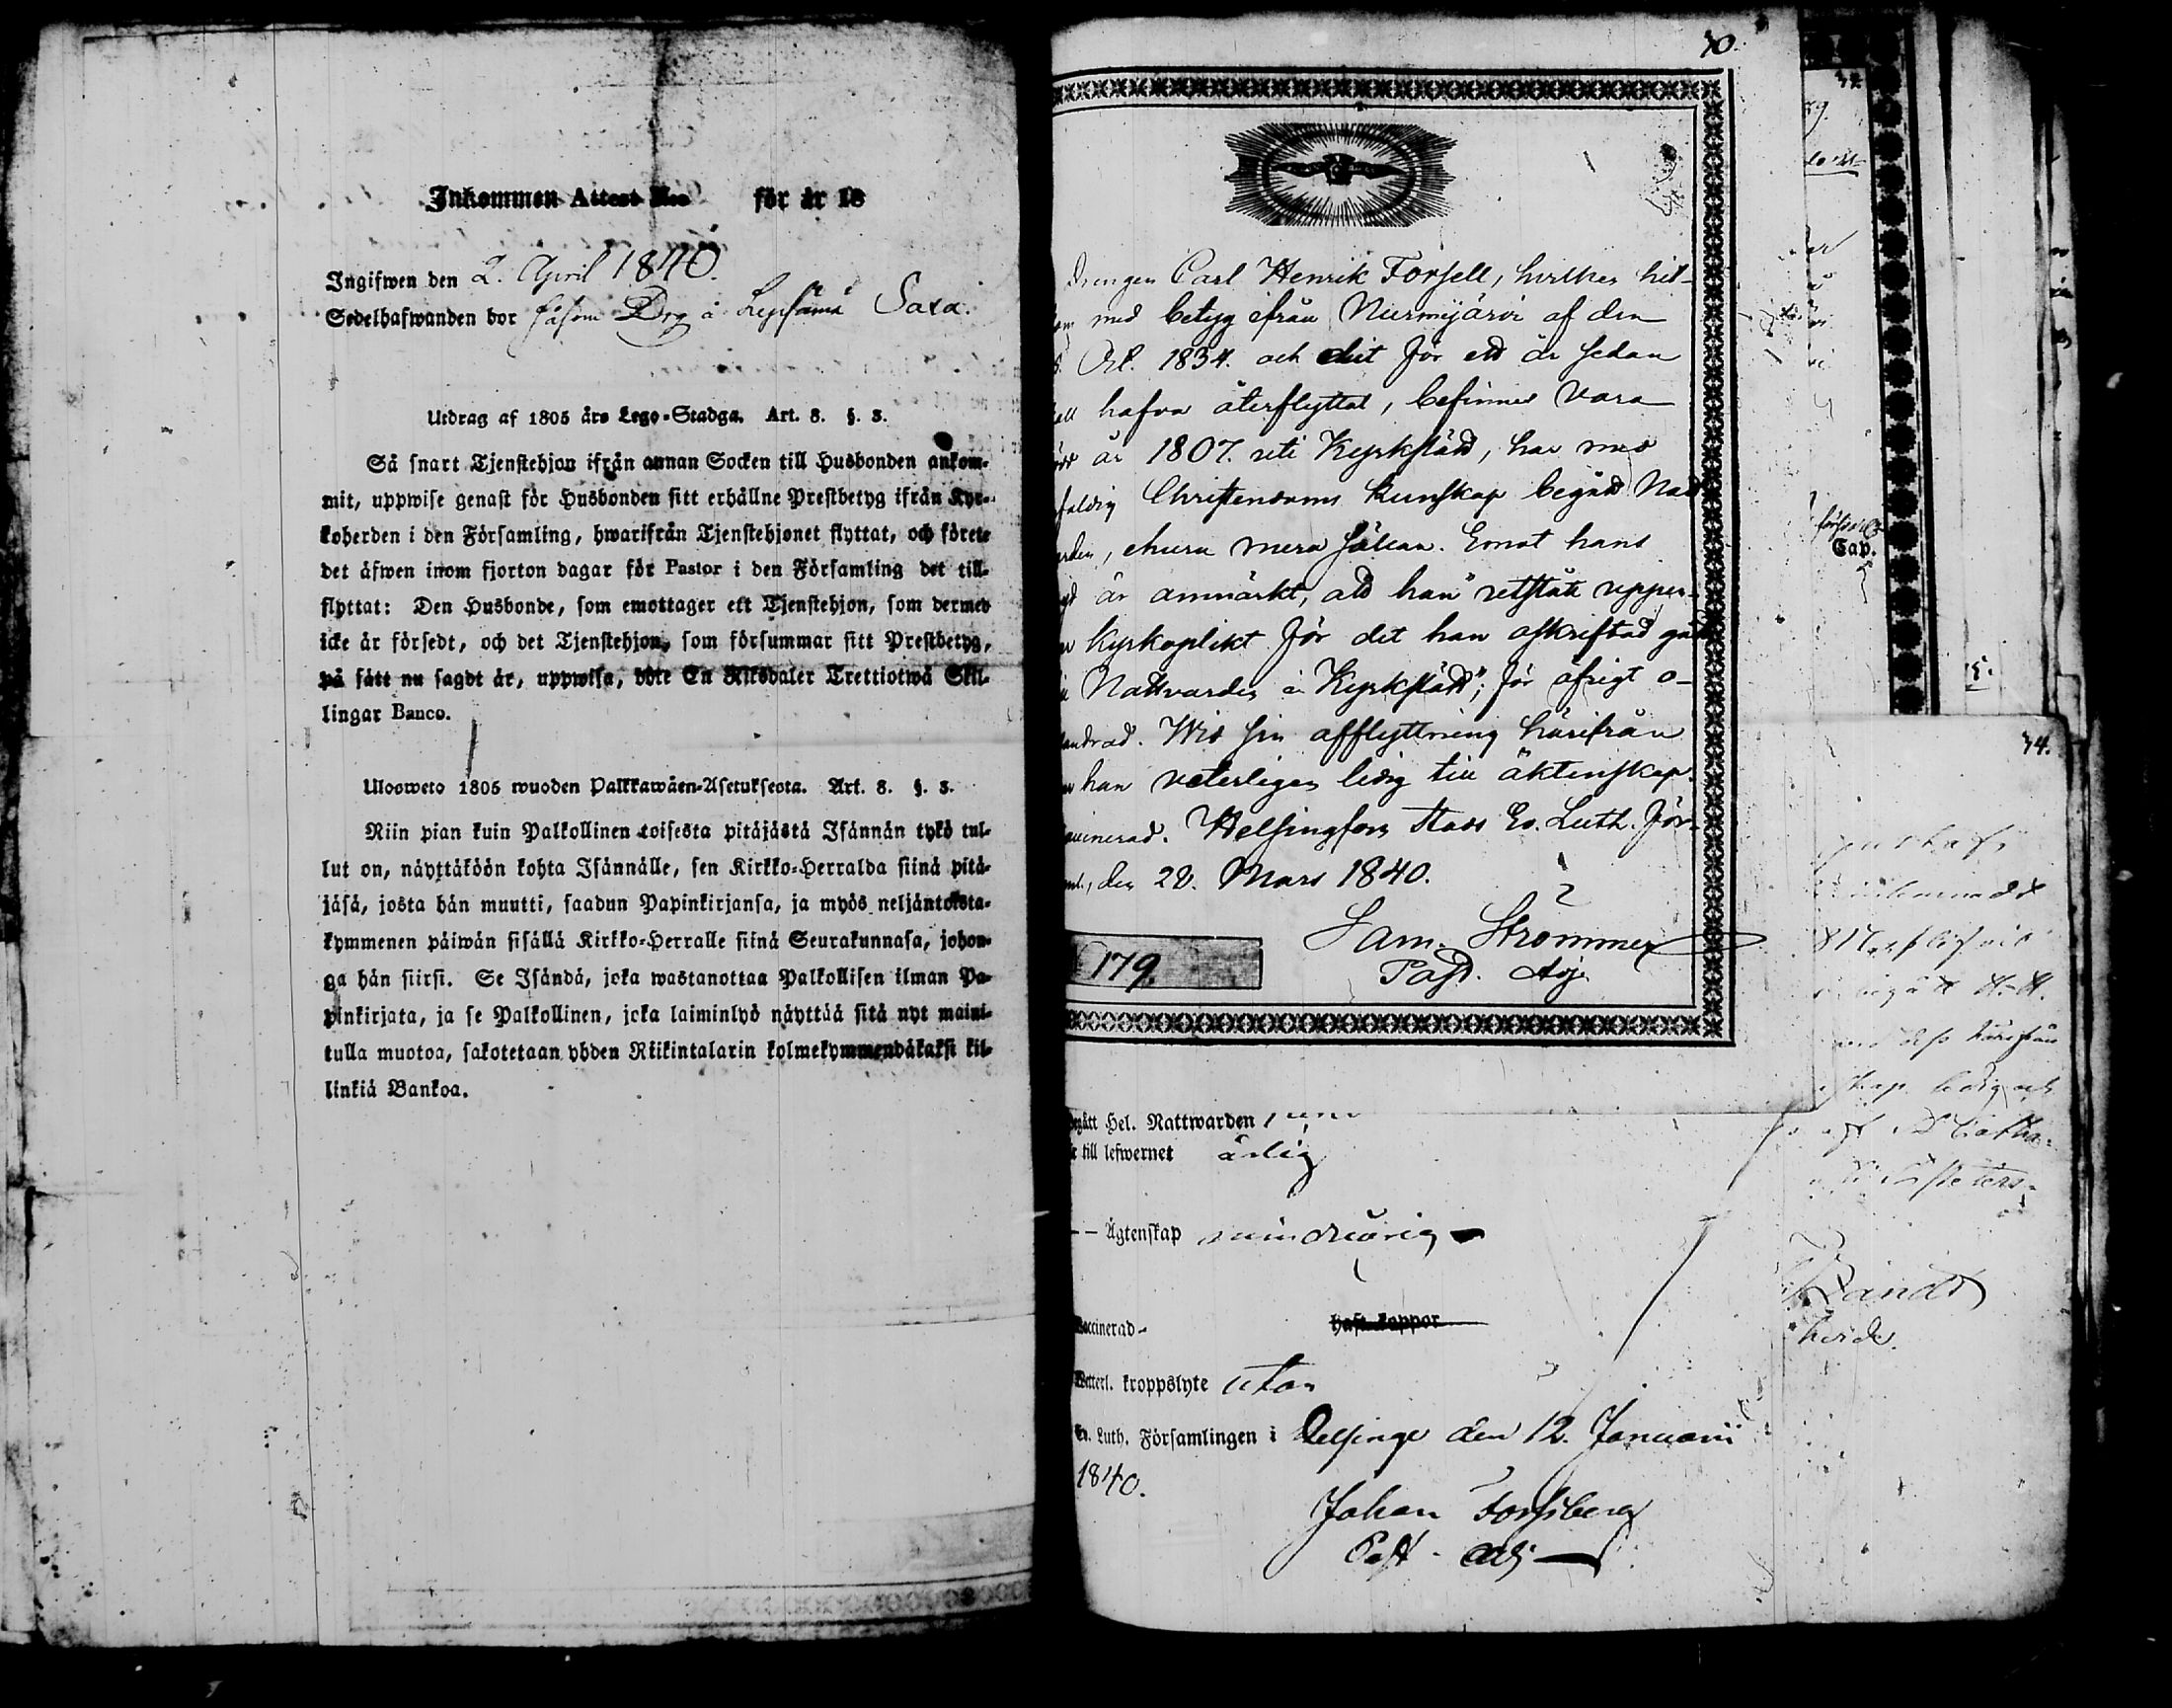 Inkommen Attest No för år 18
Ingifwen den 2. April 1840.
Sedelhafwanden bor såsom Drg å Lepsämä Saxa.
Utdrag af 1805 års Lego-Stadga. Art. 8. §. 3.
Så snart Tjenstehjon ifrån annan Socken till Husbonden ankom-
mit, uppwise genast för Husbonden sitt erhållne Prestbetyg ifrån Kyr-
koherden i den Församling, hwarifrån Tjenstehjonet flyttat, och förete
det äfwen inom fjorton dagar för Pastor i den Församling det till-
flyttat: Den Husbonde, som emottager ett Tjenstehjon, som dermed
icke är försedt, och det Tjenstehjon, som försummar sitt Prestbetyg,
på sätt nu sagdt är, uppwisa, böte En Riksdaler Trettiotwå Skil-
lingar Banco.
Ulosweto 1805 wuoden Palkkawäen-Asetuksesta. Art. 8. §. 3.
Niin pian kuin Palkollinen toisesta pitäjästä Isännän tykö tul-
lut on, näyttäköön kohta Isännälle, sen Kirkko-Herralda siinä pitä-
jäsä, josta hän muutti, saadun Papinkirjansa, ja myös neljäntoksta-
kymmenen päiwän sisällä Kirkko-Herralle siinä Seurakunnasa, johon-
ga hän siirsi. Se Isändä, joka wastanottaa Palkollisen ilman Pa-
pinkirjata, ja se Palkollinen, joka laiminlyö näyttää sitä nyt maini-
tulla muotoa, sakotetaan yhden Riikintalarin kolmekymmendäkaksi kil-
linkiä Bankoa.
70.
Drengen Carl Henrik Forsell, hvilken hit-
med betyg ifrån Nurmijärvi af den
Oct. 1834. och dit för ett år sedan
hafva återflyttat, befinnes vara
år 1807. uti Kyrkslätt, har med
faldig Christendoms kunskap begått Natt
arden, ehuru mera sällan. Emot hans
är anmärkt, att han "utstått uppen-
Kyrkoplikt för det han oskriftad gått
Nattvarden i Kyrkslätt"; för öfrigt o-
andrad. Wid sin afflyttning härifrån
han veterligen ledig till äktenskap.
vaccinerad. Helsingfors Stads Ev. Luth. För-
den 28. Mars 1840.
Sam. Strömmer
Past. Adj.
179.
begått Hel. Nattwarden
till lefwernet ärlig
— Ägtenskap minderårig
Vaccinerad
haft koppor
Wetterl. kroppslyte utan
Ev. Luth. Församlingen i Helsinge den 12. Januarii
1840.
Johan Forssberg
Past. Adj
Cap.
74.
härifrån
ledig och